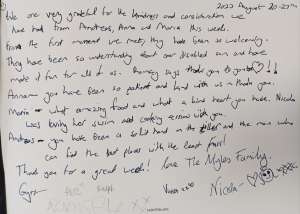 2022 August 20-27th
We are very grateful for the kindness and consideration we
have had from Andreas, Anna and Maria this week.
From the first moment we met, they have been so welcoming.
They have been so understanding about our disabled son and have
made it fun for all of us. says thank you
Anna you have been so patient and kind with us thank you.
Maria - what amazing food and what a kind heart you have. Nicola
was loving her swim and cooking with you.
Andreas - you have been a solid hand on the and the man who
can find the best places with the least fuss!
Thank you for a great week! Love The Myles Family.
Nicola